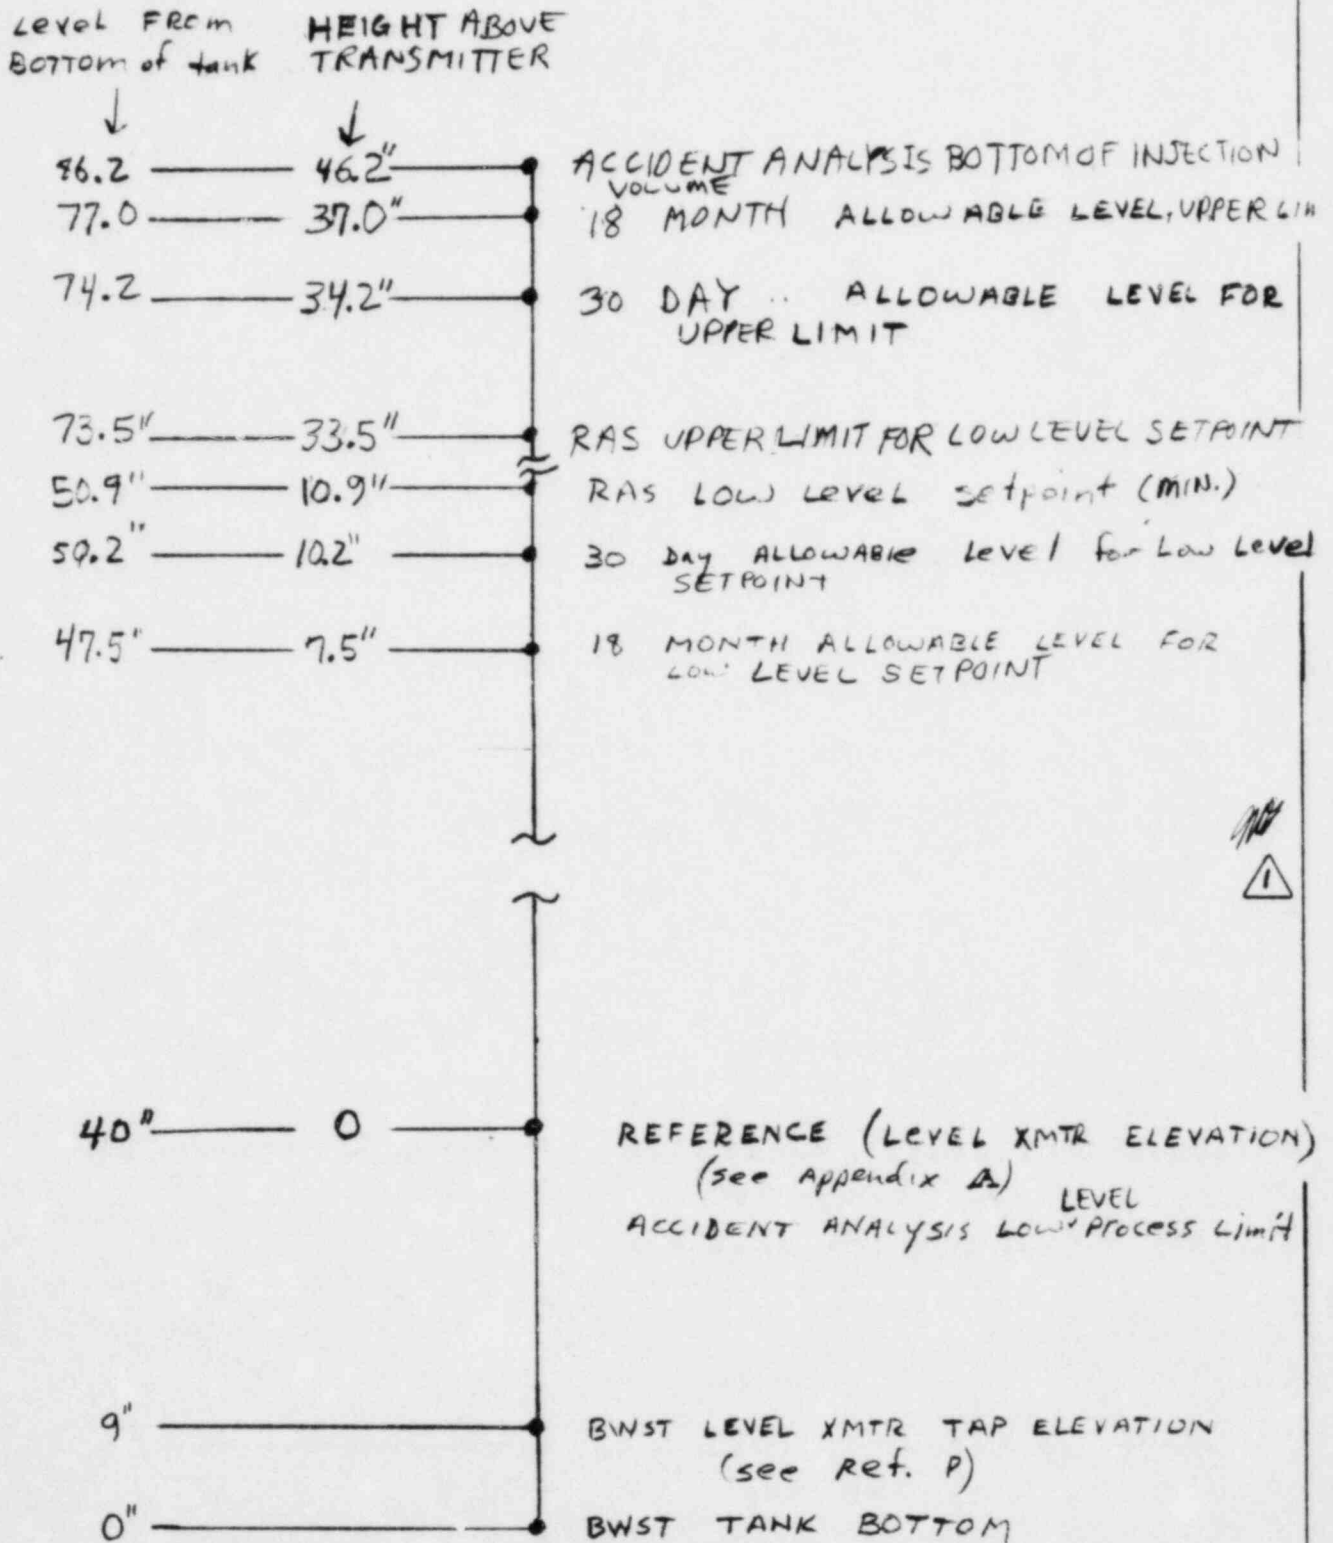 Level FROM HEIGHT ABOVE
BOTTOM of tank TRANSMITTER
86.2 46.2" ACCIDENT ANALYSIS BOTTOM OF INJECTION
VOLUME
77.0 37.0" 18 MONTH ALLOWABLE LEVEL, UPPER LIM
74.2 34.2" 30 DAY .. ALLOWABLE LEVEL FOR
UPPER LIMIT
73.5" 33.5" RAS UPPER LIMIT FOR LOW LEVEL SETPOINT
50.9" 10.9" RAS LOW Level setpoint (MIN.)
50.2" 10.2" 30 Day ALLOWABle Level for Low Level
SETPOINT
47.5" 7.5" 18 MONTH ALLOWABLE LEVEL FOR
LOW LEVEL SETPOINT
1
40" 0 REFERENCE (LEVEL XMTR ELEVATION)
(see Appendix A)
LEVEL
ACCIDENT ANALYSIS LOW Process Limit
9" BWST LEVEL XMTR TAP ELEVATION
(see Ref. P)
0" BWST TANK BOTTOM